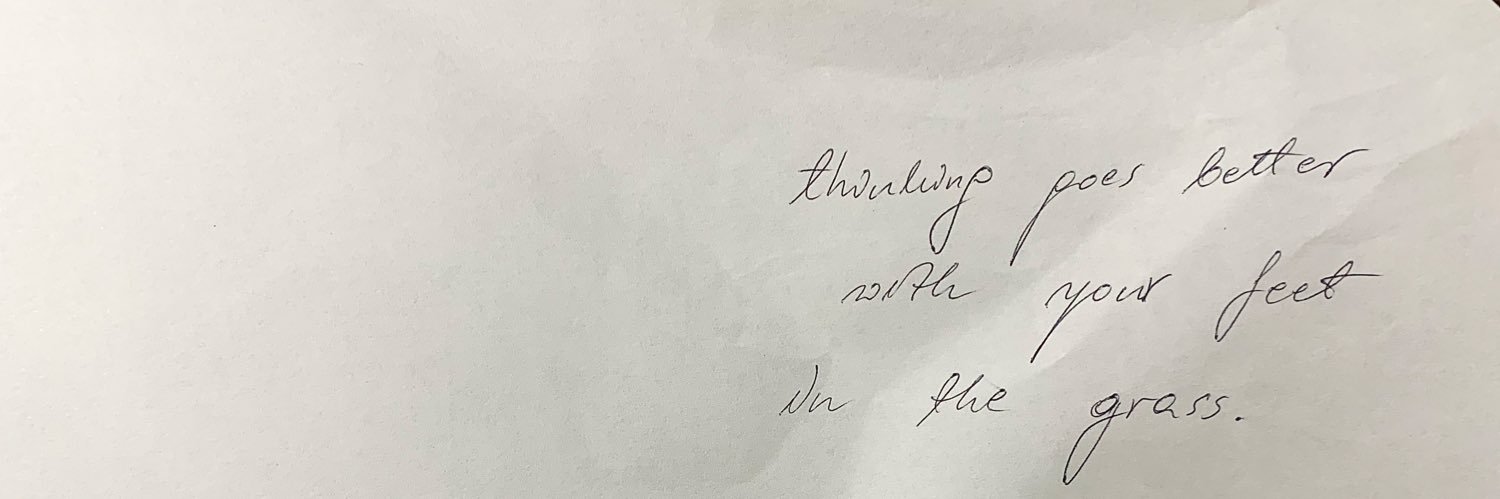 thinking goes better
with your feet
in the grass.